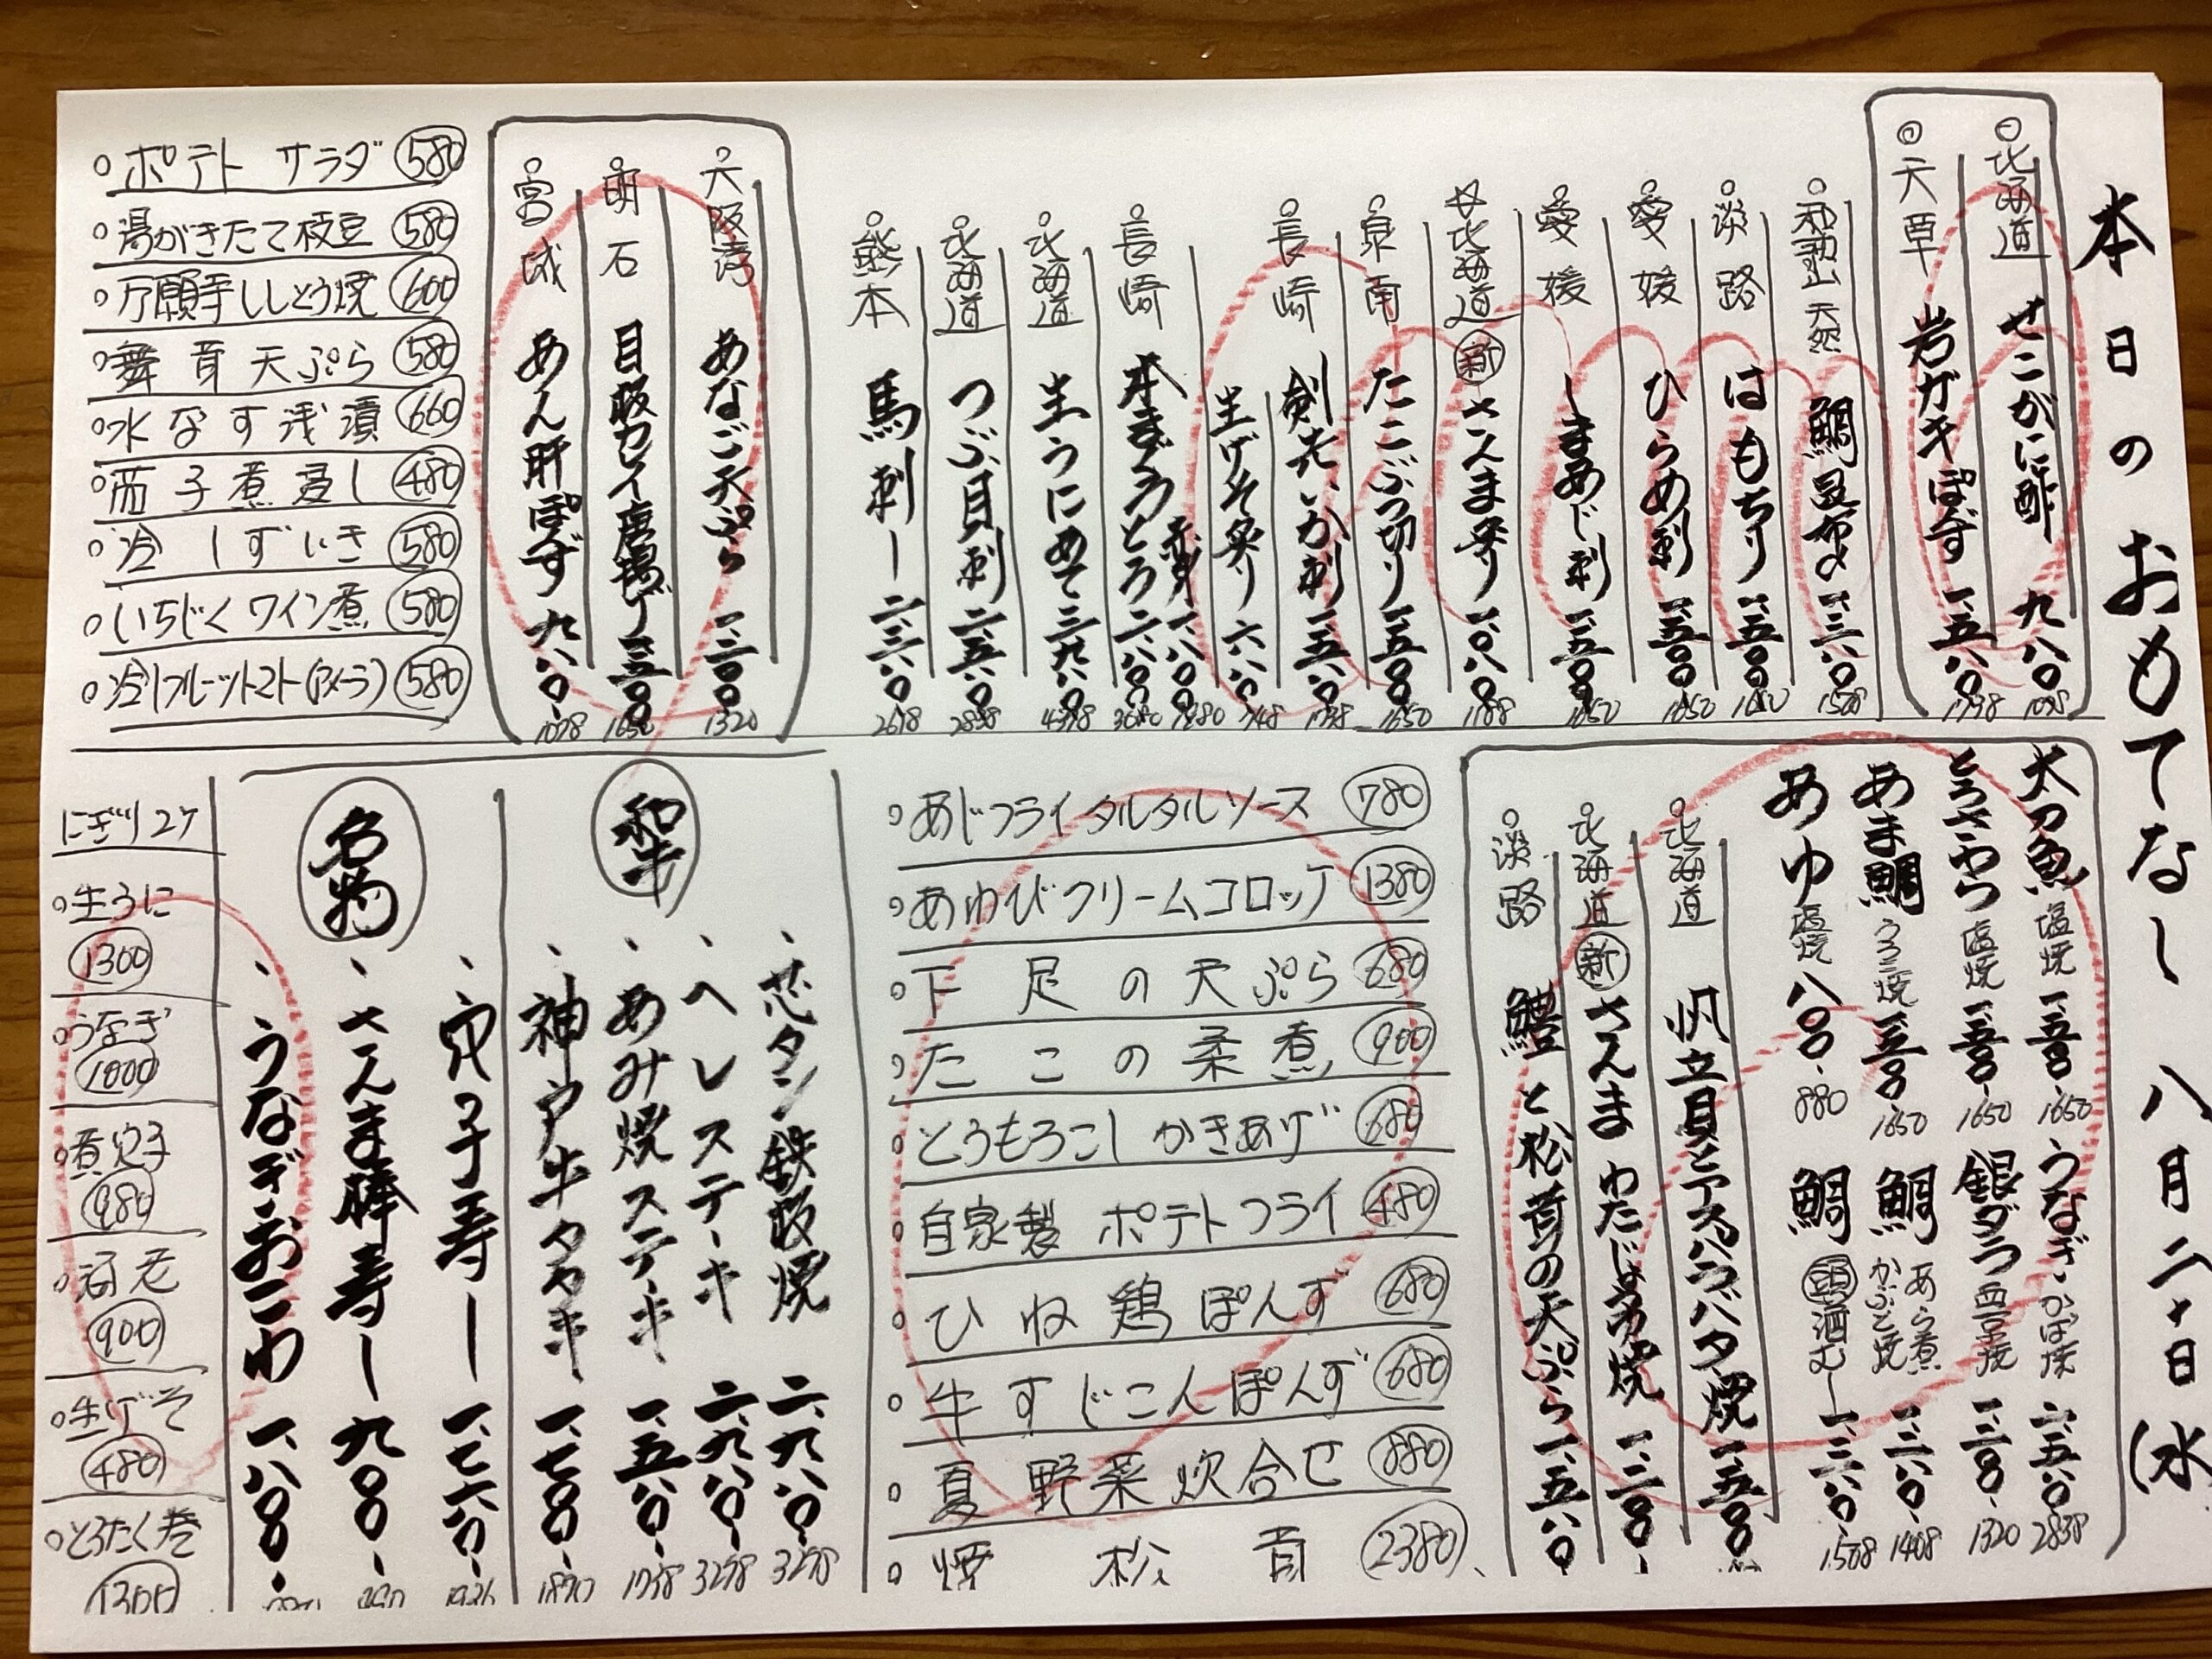 本日のおもてなし 八月二十日(水
北海道 せこがに酢 九八〇 1078
天草 岩ガキぽず 一、五八〇 1738
和歌山 天然 鯛昆布〆 一、三八〇 1508
淡路 はもちり 一、五〇〇 1650
愛媛 ひらめ刺 一、五〇〇 1650
愛媛 しまあじ刺 一、五〇〇 1650
北海道 新 さんま造り 一、〇八〇 1188
泉南 たこぶつ切り 一、五〇〇 1650
長崎 剣先いか刺 一、五八〇 1738
生げそ造り 六八〇 748
長崎 本まぐろ 赤身 一、八〇〇 1980
とろ 二、八〇〇 3080
北海道 生うにめて 三、九八〇 4378
北海道 つぶ貝刺 二、五八〇 2838
熊本 馬刺し 二、三八〇 2618
大阪湾 あなご天ぷら 一、二〇〇 1320
明石 目板カレイ唐揚げ 一、五〇〇 1650
宮城 あん肝ぽず 九八〇 1078
ポテトサラダ 580
湯がきたて枝豆 580
万願寺ししとう焼 600
舞茸天ぷら 580
水なす浅漬 660
茄子煮浸し 480
冷しずいき 580
いちじくワイン煮 580
冷しフルーツトマト(アメーラ) 580
太刀魚 塩焼 一、五〇〇 1650
とろさわら 塩焼 一、五〇〇 1650
あま鯛 うろこ焼 一、五〇〇 1650
あゆ 塩焼 八〇〇 880
うなぎ かば焼 二、五八〇 2838
銀ダラ 西京焼 一、二〇〇 1320
鯛 あら煮 かぶと焼 一、二八〇 1408
鯛 頭 酒むし 一、三八〇 1508
北海道 帆立貝とアスパラバタ焼 一、五〇〇
北海道 新 さんまわたじょうゆ焼 一、二〇〇
淡路 鱧と松茸の天ぷら 一、五八〇
あじフライタルタルソース 780
あわびクリームコロッケ 1380
下足の天ぷら 680
たこの柔煮 900
とうもろこしかきあげ 680
自家製ポテトフライ 480
ひね鶏ぽんず 680
牛すじこんぽんず 680
夏野菜炊合せ 880
焼松茸 2380
和牛
芯タン鉄板焼 二、九八〇 3278
ヘレステーキ 二、九八〇 3278
あみ焼ステーキ 一、五八〇 1738
神戸牛タタキ 一、七〇〇 1870
名物
穴子寿し 一、七六〇
さんま棒寿し 九〇〇
うなぎおこわ 一、八〇〇
にぎり2ケ
生うに 1300
うなぎ 1000
煮穴子 980
海老 900
生げそ 480
とろたく巻 1300